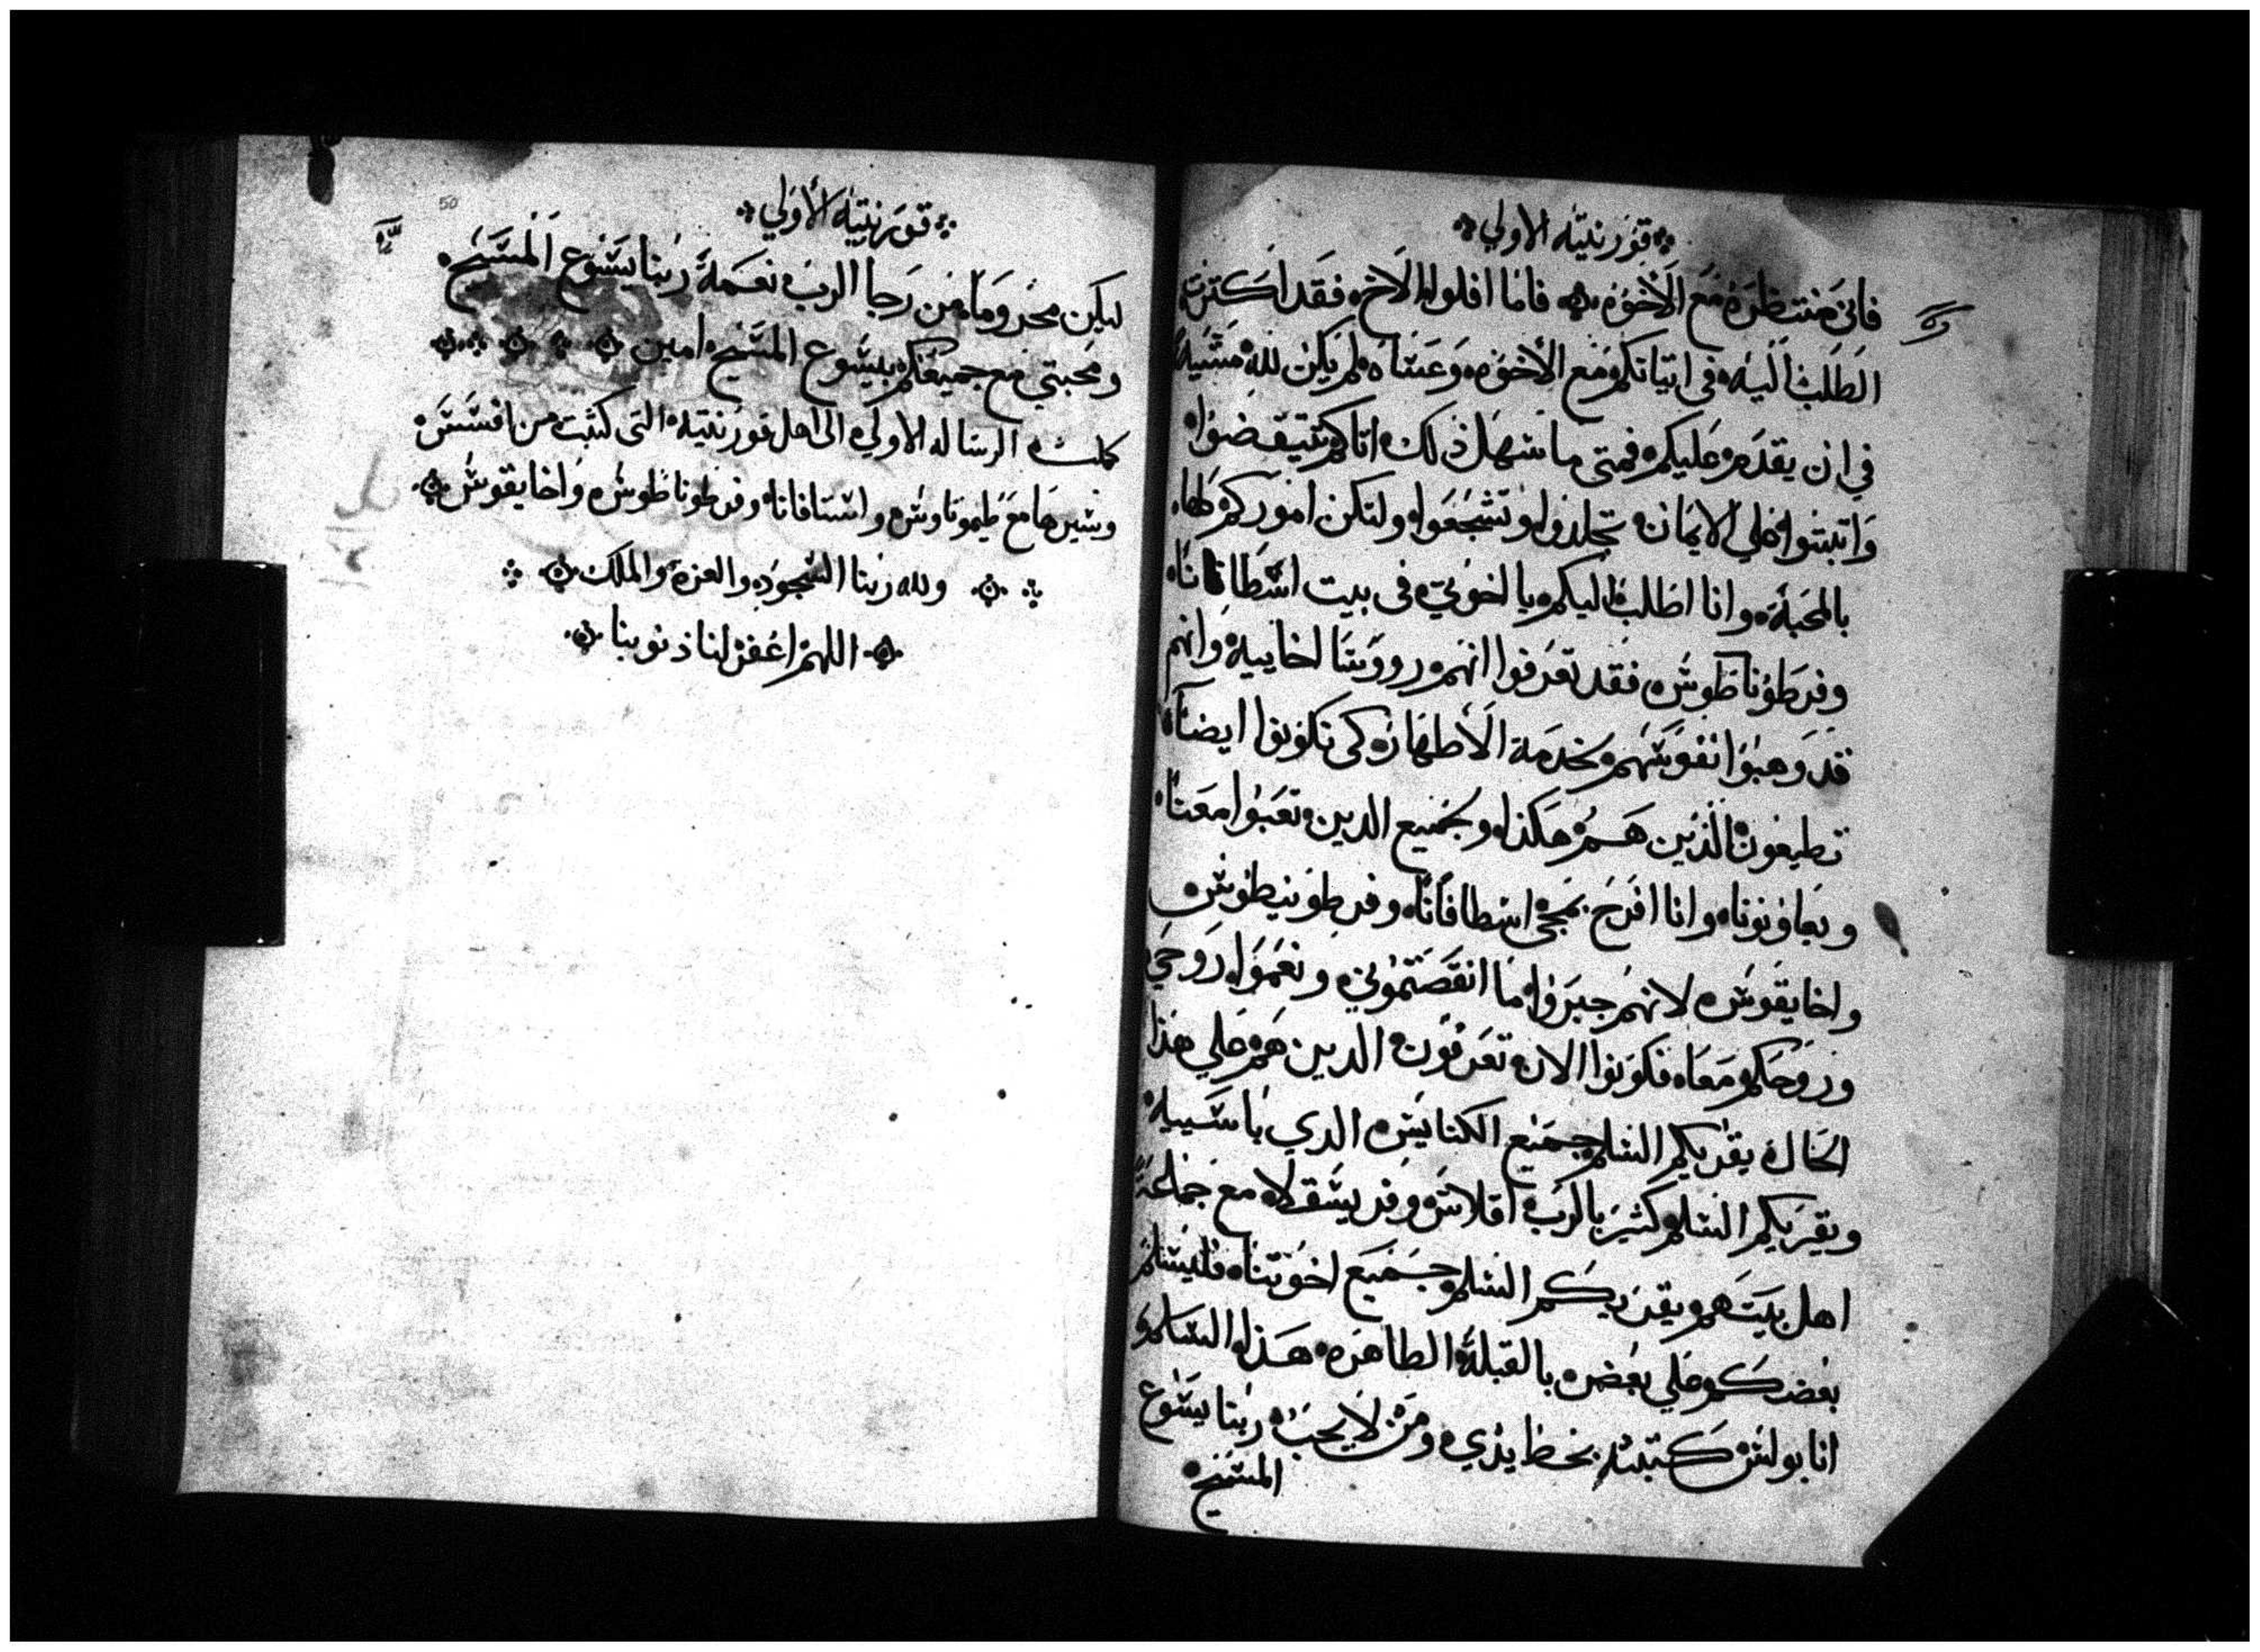 قورنتيه الاولي
فاني منتظره مع الاخوه فاما افلوا الاخ فقد اكترت
الطلب اليه في اتيانكم مع الاخوه وعساه لم يكن لله مشية
في ان يقدم عليكم فمتى ما سهل ذلك اتاكم تيقضوا
واتبتوا علي الايمان تجلدوا وتشجعوا ولتكن اموركم كلها
بالمحبة وانا اطلب اليكم يا اخوتي في بيت اسطافانا
وفرطوناطوس فقد تعرفوا انهم رووسا اخاييه وانهم
قد وهبوا نفوسهم بخدمة الاطهار كي تكونوا ايضا
تطيعون الذين هم هكذا وبجميع الدين تعبوا معنا
ويعاونونا وانا افرح بمجي اسطافانا وفرطونيطوس
واخايقوس لانهم جبروا ما انقصتموني ونعموا روحي
وروحكم معا فكونوا الان تعرفون الدين هم علي هذا
الحال يقريكم السلم جميع الكنايس الدي باسييه
ويقريكم السلم كثير بالرب اقلاس وفريسقلا مع جماعة
اهل بيتهم ويقريكم السلم جميع اخوتنا فليسلم
بعضكم علي بعض بالقبلة الطاهره هذا السلم
انا بولس كتبته بخط يدي ومن لا يحب ربنا يسوع
المسيح
50
قورنتيه الاولي
ليكن محروما من رجا الرب نعمة ربنا يسوع المسيح
ومحبتي مع جميعكم بيسوع المسيح امين
كملت الرساله الاولي الى اهل قورنتية التى كتبت من افسس
وسيرها مع طيموتاوس واستافانا وفرطوناطوس واخايقوس
ولله ربنا السجود والعزة والملك
اللهم اغفر لنا ذنوبنا